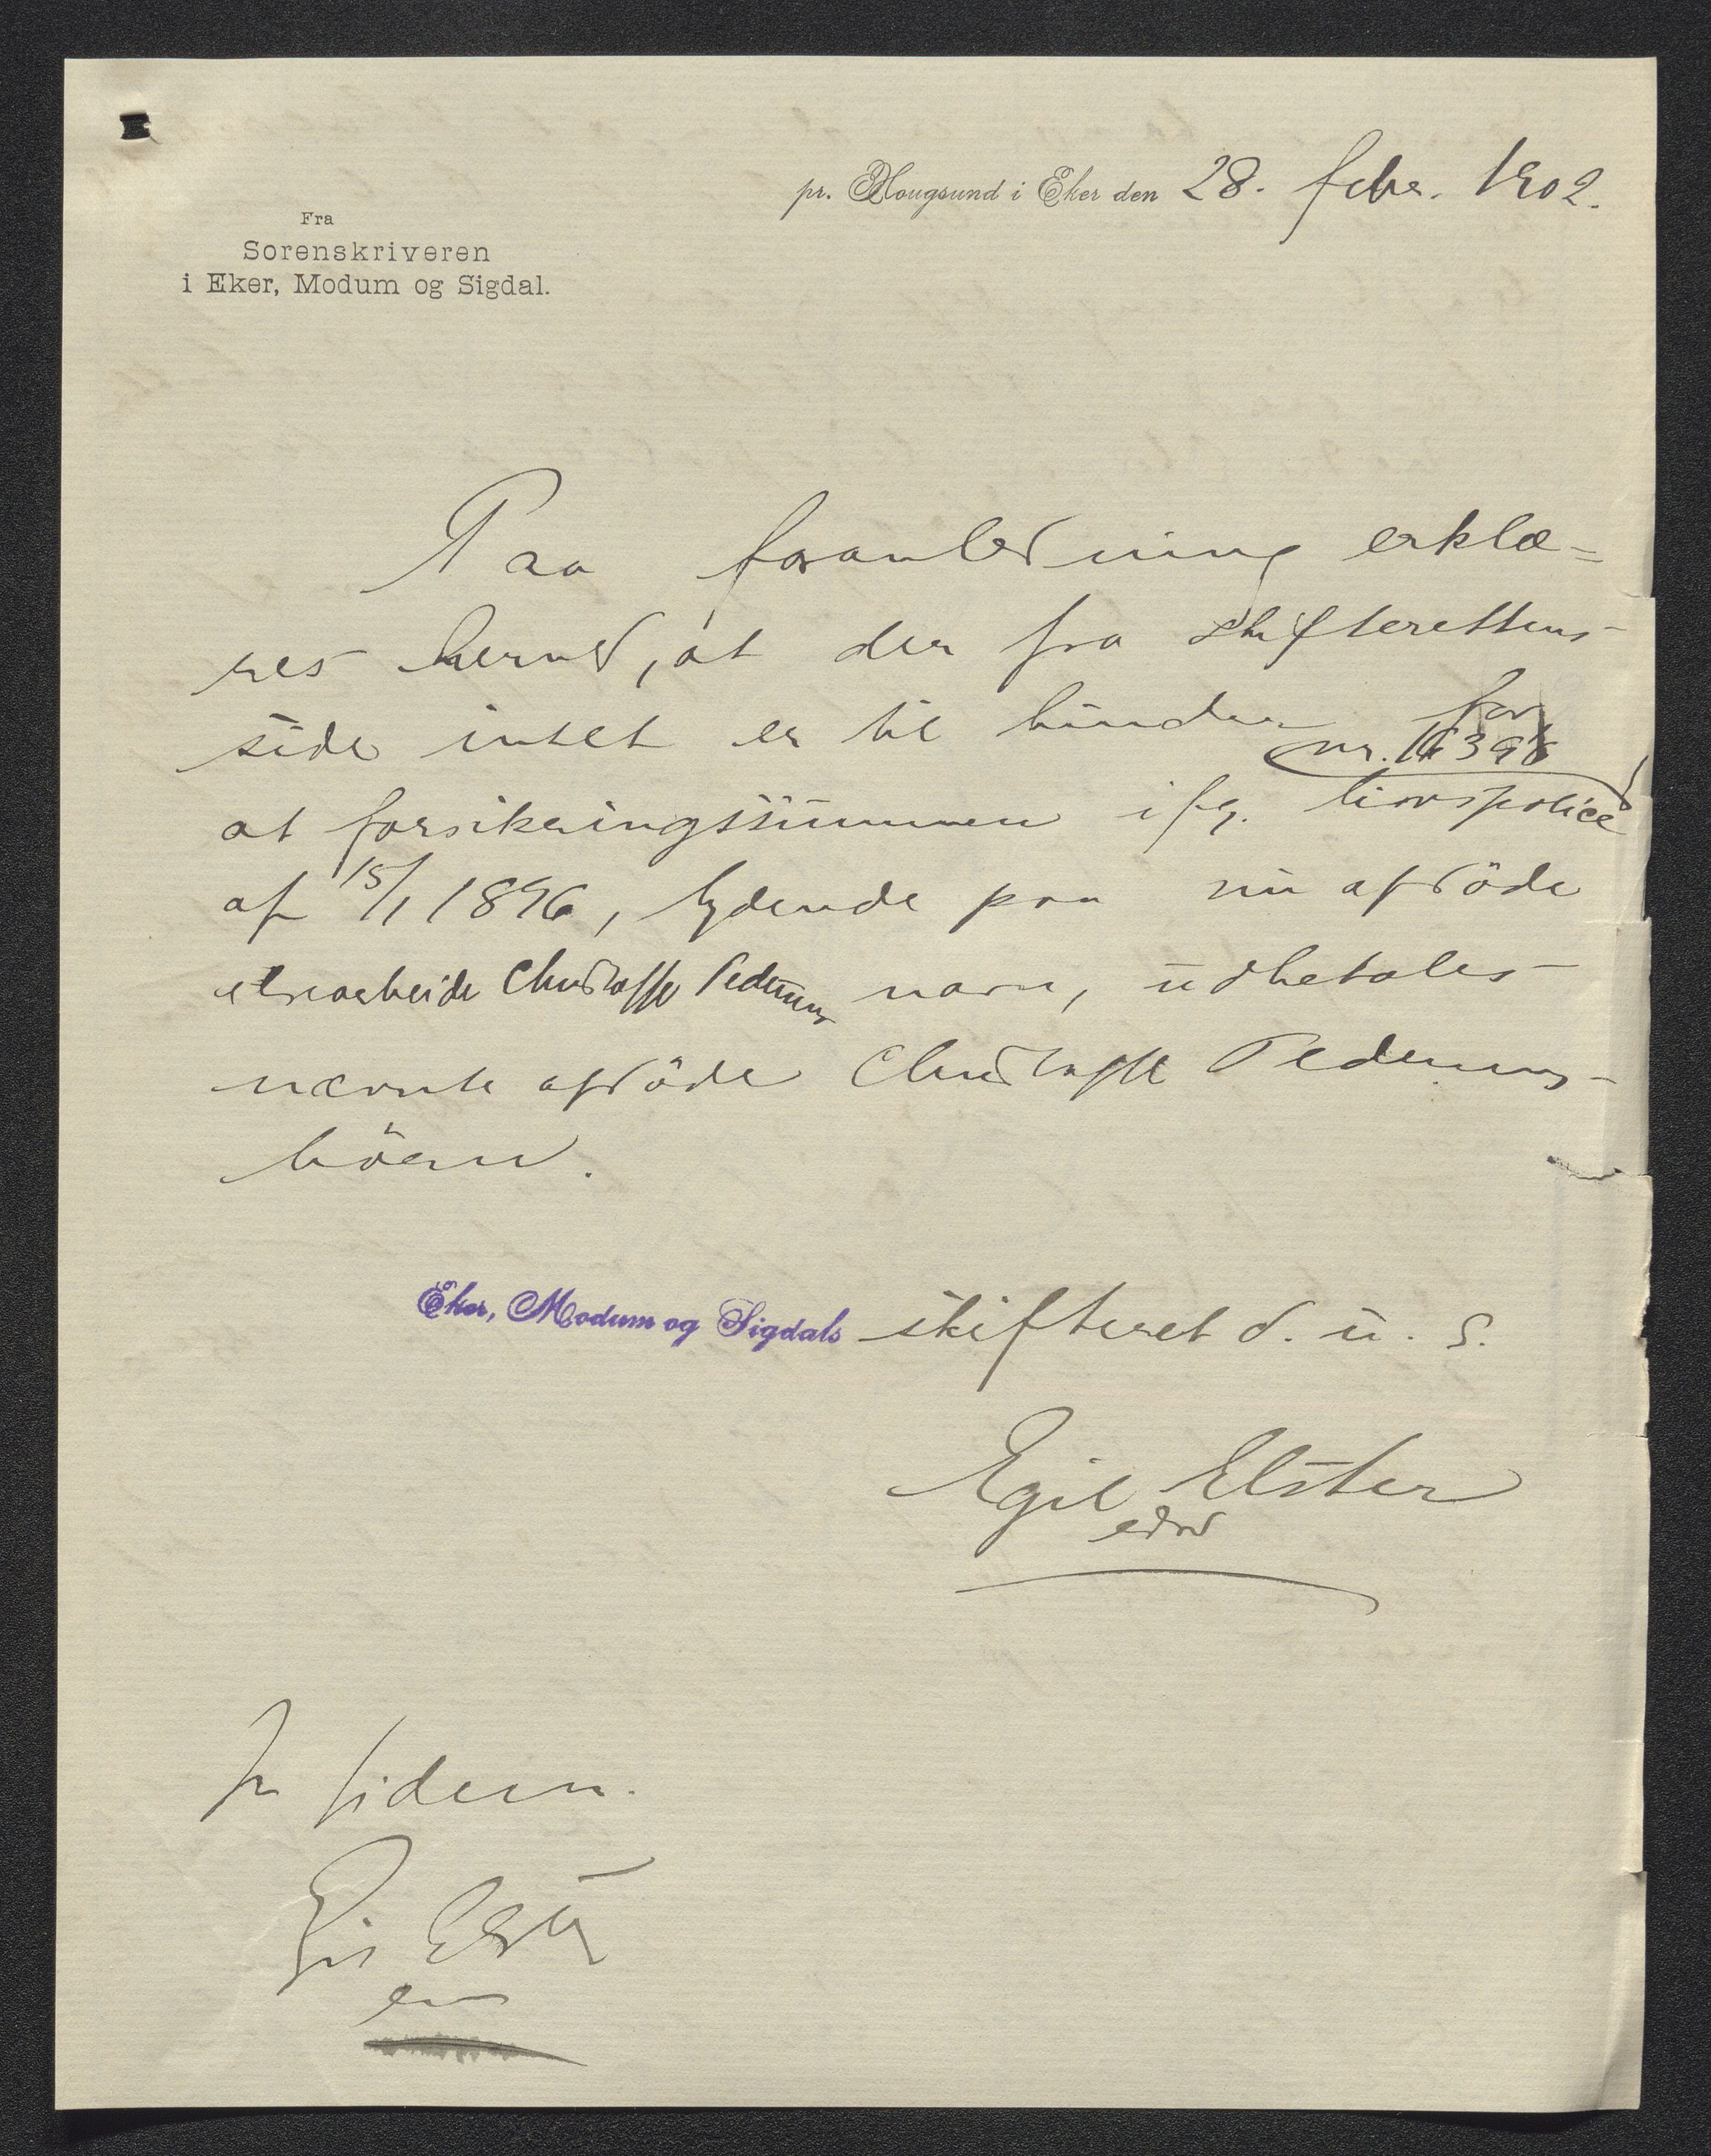 pr. Hougsund i Eker den 28. febr. 1902.
Fra
Sorenskriveren
i Eker, Modum og Sigdal.
Paa foranledning erklæ=
res herved, at der fra skifterettens
side intet er til hinder for
nr. 16398
at forsikringssummen ifg. livspolice
af 15/1 1896, lydende paa nu afdöde
Christoffer Pedersens navn, udbetales
nævnte afdöde Christoffer Pedersens
börn.
Eker, Modum og Sigdals skifteret d. u. s.
Egil Elster
edsv
In fidem.
Egil Elster